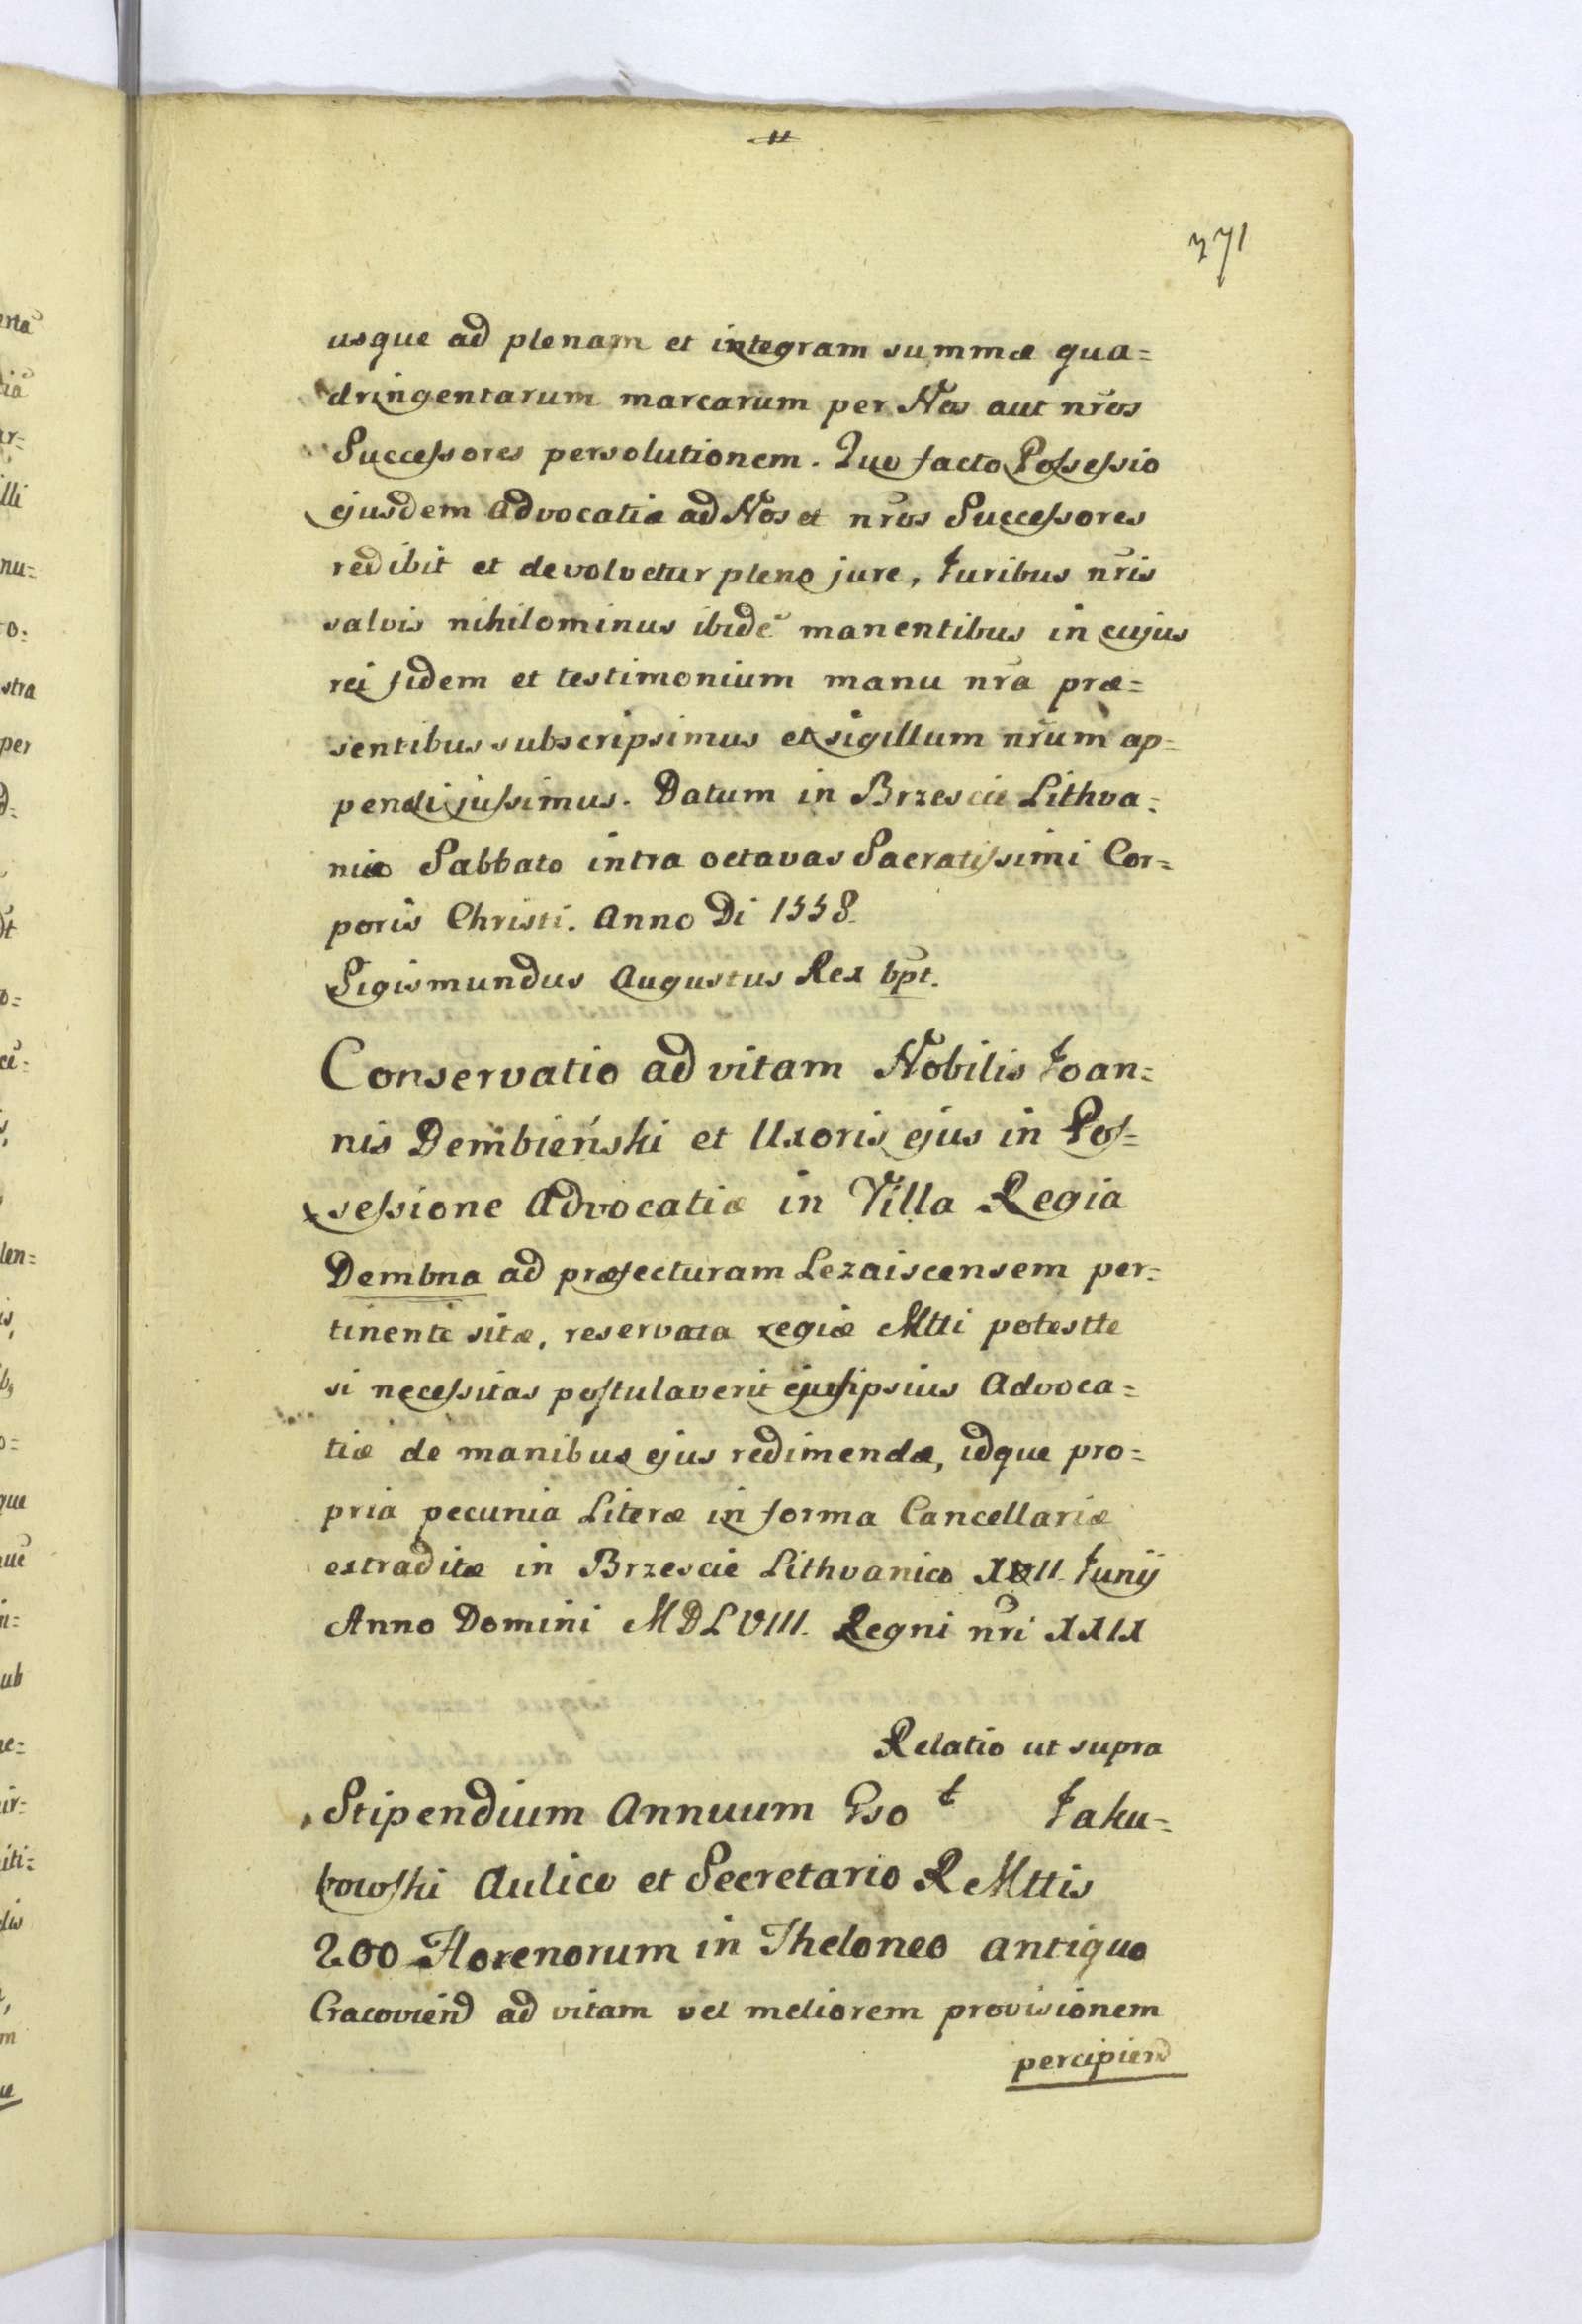 271
usque ad plenam et integram summæ qua=
dringentarum marcarum per Nos aut nr̃os
Successores persolutionem. Quo facto Possessio
ejusdem Advocatiæ ad Nos et nr̃os Successores
redibit et devolvetur pleno jure, Juribus nr̃is
salvis nihilominus ibidẽ manentibus in cujus
rei fidem et testimonium manu nr̃a præ=
sentibus subscripsimus et sigillum nr̃um ap=
pendi jussimus. Datum in Brzescie Lithva=
niæ Sabbato intra octavas Sacratissimi Cor=
poris Christi. Anno Di 1558.
Sigismundus Augustus Rex
Conservatio ad vitam Nobilis Joan=
nis Dembieński et Uxoris ejus in Pos=
sessione Advocatiæ in Villa Regia
Dembna ad præfecturam Lezaiscensem per=
tinenti sitæ, reservata regiæ Mtti potestte
si necessitas postulaverit ejusipsius Advoca=
tiæ de manibus ejus redimendæ, idque pro=
pria pecunia Literæ in forma Cancellariæ
extraditæ in Brzescie Lithvanica Junij
Anno Domini MDLVIII. Regni nr̃i XXIX
Relatio ut supra
Stipendium Annuum Gso t Jaku=
bowski Aulico et Secretario R Mttis
200 Florenorum in Theloneo antiquo
Cracovien̄ ad vitam vel meliorem provisionem
percipien̄